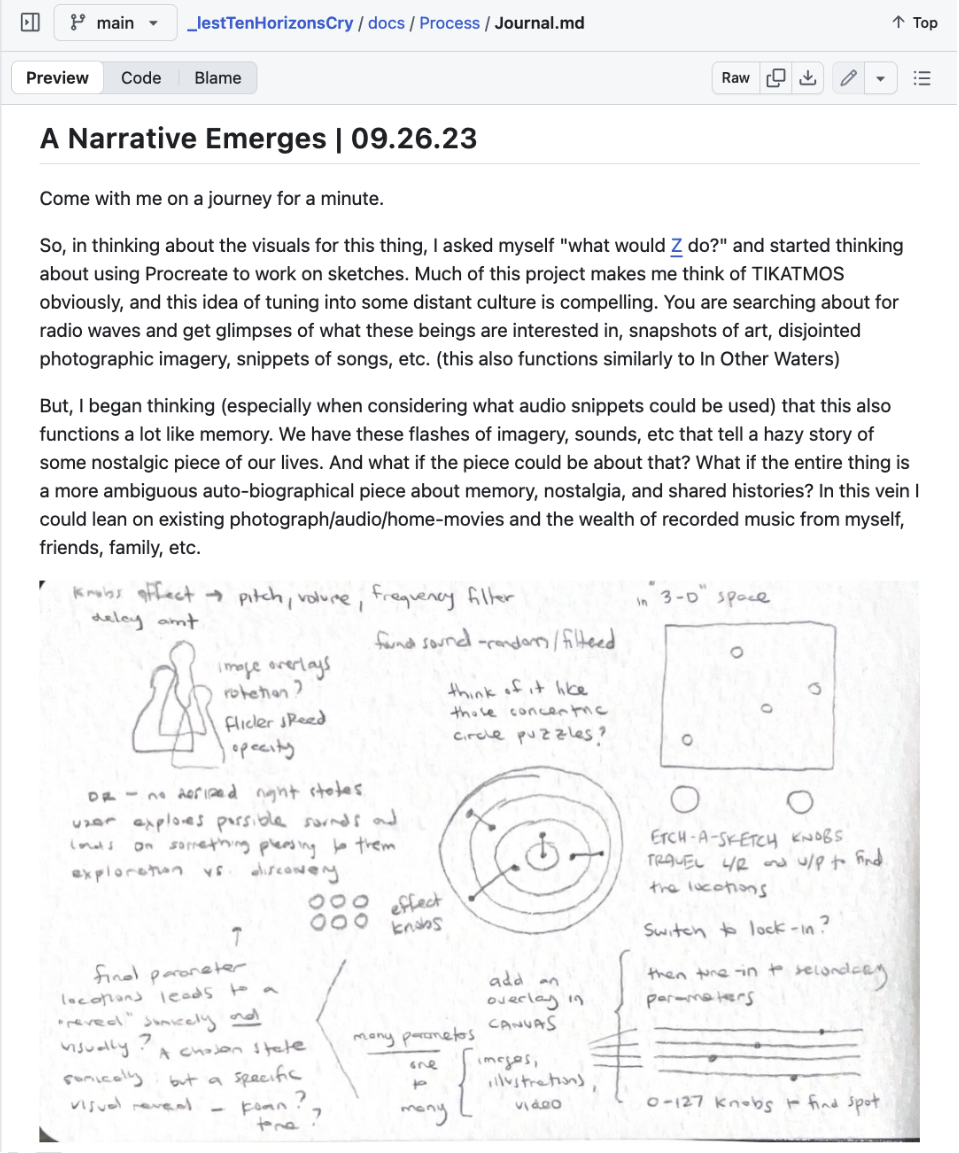 main
_lestTenHorizonsCry / docs / Process / Journal.md
Top
Preview
Code
Blame
Raw
A Narrative Emerges | 09.26.23
Come with me on a journey for a minute.
So, in thinking about the visuals for this thing, I asked myself "what would Z do?" and started thinking
about using Procreate to work on sketches. Much of this project makes me think of TIKATMOS
obviously, and this idea of tuning into some distant culture is compelling. You are searching about for
radio waves and get glimpses of what these beings are interested in, snapshots of art, disjointed
photographic imagery, snippets of songs, etc. (this also functions similarly to In Other Waters)
But, I began thinking (especially when considering what audio snippets could be used) that this also
functions a lot like memory. We have these flashes of imagery, sounds, etc that tell a hazy story of
some nostalgic piece of our lives. And what if the piece could be about that? What if the entire thing is
a more ambiguous auto-biographical piece about memory, nostalgia, and shared histories? In this vein I
could lean on existing photograph/audio/home-movies and the wealth of recorded music from myself,
friends, family, etc.
knobs effect → pitch, volume, frequency filter
delay amt
image overlays
rotation?
flicker speed
opacity
found sound - random/filtered
think of it like
those concentric
circle puzzles?
in "3-D" space
OR - no desired right states
user explores possible sounds and
lands on something pleasing to them
exploration vs. discovery
effect
knobs
ETCH-A-SKETCH KNOBS
TRAVEL L/R and U/P to find
the locations
Switch to lock-in?
then tune-in to secondary
parameters
0-127 knobs to find spot
final parameter
locations leads to a
"reveal" sonically and
visually? A chosen state
sonically but a specific
visual reveal -
many parameters
one
to
many
add an
overlay in
CANVAS
images,
illustrations,
video